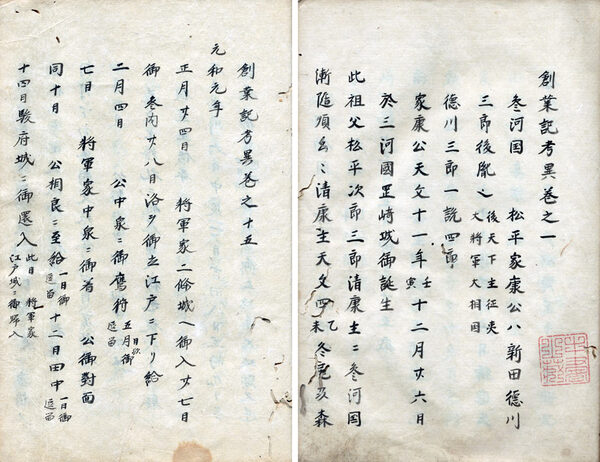 創業記考異卷之一
参河国　松平家康公ハ新田德川
三郎後胤也 後天下主征夷大将軍大相国
德川三郎一説四郎
家康公天文十一年壬寅十二月廿六日
於三河國罡崎城御誕生
此祖父松平次郎三郎清康生ニ参河国
漸隨順 清康生天文四乙未冬 森
創業記考異卷之十五
元和元年
正月廿四日　将軍家二條城ヘ御入廿七日
御参内廿八日洛ヲ御立江戸ニ下リ給
二月四日　公中泉ニ御鷹狩 五日 御逗留
七日　将軍家中泉ニ御着　公御對面
同十日　公相良ニ至給 一日御逗留 十二日田中 一日御逗留
十四日駿府城ニ御還入 此日　将軍家江戸城ニ御歸入